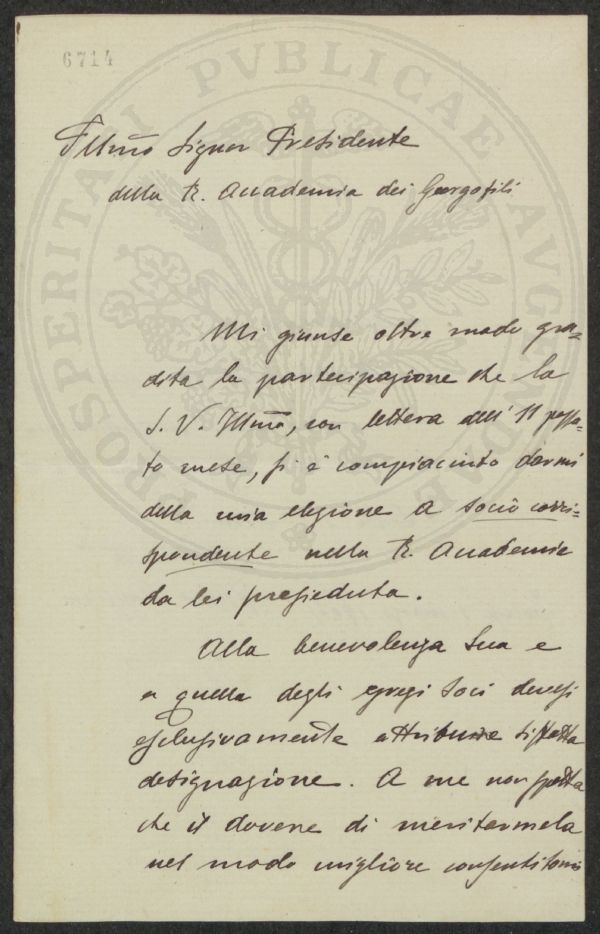 6714
PROSPERITATI PVBLICAE AVGENDAE
Illm̃o Signor Presidente
della R. Accademia dei Georgofili
Mi giunse oltre modo gra=
dita la partecipazione che la
S. V. Illm̃a, con lettera dell' 11 passa=
to mese, si è compiaciuto darmi
della mia elezione a socio corri=
spondente nella R. Accademia
da lei presieduta.
Alla benevolenza Sua e
a quella degli egregi Soci devesi
esclusivamente attribuire siffatta
designazione. A me non spetta
che il dovere di meritarmela
nel modo migliore consentitomi